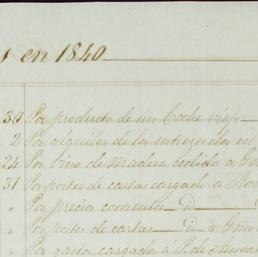 s en 1840
30 Por producto de un Coche viejo
2 Por alquiler de los entresuelos en
24 Por Vino de Madera cedido a
31 Por portes de cartas cargado á
" Por precios corrientes d
" Por portes de cartas d a
" Por gastos cargados á